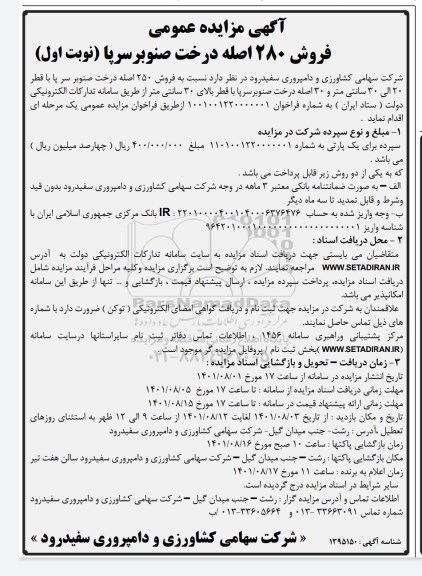 آگهی مزایده عمومی
فروش ۲۸۰ اصله درخت صنوبرسرپا (نوبت اول)
شرکت سهامی کشاورزی و دامپروری سفیدرود در نظر دارد نسبت به فروش ۲۵۰ اصله درخت صنوبر سر پا با قطر
۲۰ الی ۳۰ سانتی متر و ۳۰ اصله درخت صنوبرسرپا با قطر بالای ۳۰ سانتی متر از طریق سامانه تدارکات الکترونیکی
دولت ( ستاد ایران ) به شماره فراخوان ۱۰۰۱۰۰۱۲۲۰۰۰۰۰۰۱ ازطریق فراخوان مزایده عمومی یک مرحله ای
اقدام نماید .
۱- مبلغ و نوع سپرده شرکت در مزایده
سپرده برای یک پارتی به شماره ۱۱۰۱۰۰۱۲۲۰۰۰۰۰۰۱ مبلغ ۴۰۰/۰۰۰/۰۰۰ ریال ( چهارصد میلیون ریال )
می باشد .
که به یکی از دو روش زیر قابل پرداخت می باشد .
الف – به صورت ضمانتنامه بانکی معتبر ۳ ماهه در وجه شرکت سهامی کشاورزی و دامپروری سفیدرود بدون قید
وشرط و قابل تمدید تا سه ماه دیگر
ب- وجه واریز شده به حساب IR : ۲۲۰۱۰۰۰۰۴۰۰۱۰۴۰۰۰۶۳۷۶۴۷۶ بانک مرکزی جمهوری اسلامی ایران با
شناسه واریز
۲ - محل دریافت اسناد :
متقاضیان می بایستی جهت دریافت اسناد مزایده به سایت سامانه تدارکات الکترونیکی دولت به آدرس
WWW.SETADIRAN.IR مراجعه نمایند. لازم به توضیح است برگزاری مزایده وکلیه مراحل فرآیند مزایده شامل
دریافت اسناد مزایده، پرداخت سپرده مزایده ، ارسال پیشنهاد قیمت ، بازگشایی و ... تنها از طریق این سامانه
امکانپذیر می باشد.
علاقمندان به شرکت در مزایده جهت ثبت نام و دریافت گواهی امضای الکترونیکی ( توکن ) ضرورت دارد با شماره
های ذیل تماس حاصل نمایند.
مرکز پشتیبانی وراهبری سامانه ۱۴۵۶ و اطلاعات تماس دفاتر ثبت نام سایراستانها درسایت سامانه
(WWW.SETADIRAN.IR )بخش ثبت نام / پروفایل مزایده گر موجود است.
۳- زمان دریافت – تحویل و بازگشایی اسناد مزایده :
تاریخ انتشار مزایده در سامانه از ساعت ۱۷ مورخ ۱۴۰۱/۰۸/۰۱
مهلت زمانی دریافت اسناد مزایده از سامانه : تا ساعت ۱۷ مورخ ۱۴۰۱/۰۸/۰۵
مهلت زمانی ارائه پیشنهاد قیمت در سامانه : تا ساعت ۱۷ مورخ ۱۴۰۱/۰۸/۱۵
تاریخ و مکان بازدید : از تاریخ ۱۴۰۱/۰۸/۰۳ لغایت ۱۴۰۱/۰۸/۱۲ از ساعت ۹ الی ۱۲ ظهر به استثنای روزهای
تعطیل ،آدرس : رشت- جنب میدان گیل- شرکت سهامی کشاورزی و دامپروری سفیدرود
زمان بازگشایی پاکتها : ساعت ۱۰ صبح مورخ ۱۴۰۱/۰۸/۱۶
مکان بازگشایی پاکتها : رشت – جنب میدان گیل – شرکت سهامی کشاورزی و دامپروری سفیدرود سالن هفت تیر
زمان اعلام به برنده : ساعت ۱۱ مورخ ۱۴۰۱/۰۸/۱۷
سایر شرایط در اسناد مزایده درج گردیده است.
اطلاعات تماس و آدرس مزایده گزار : رشت – جنب میدان گیل – شرکت سهامی کشاورزی و دامپروری سفیدرود
شماره تماس ۳۳۶۶۳۰۹۱ -۰۱۳ و ۳۳۶۰۵۶۶۴-۰۱۳
شناسه آگهی : ۱۳۹۵۱۵۰
« شرکت سهامی کشاورزی و دامپروری سفیدرود »